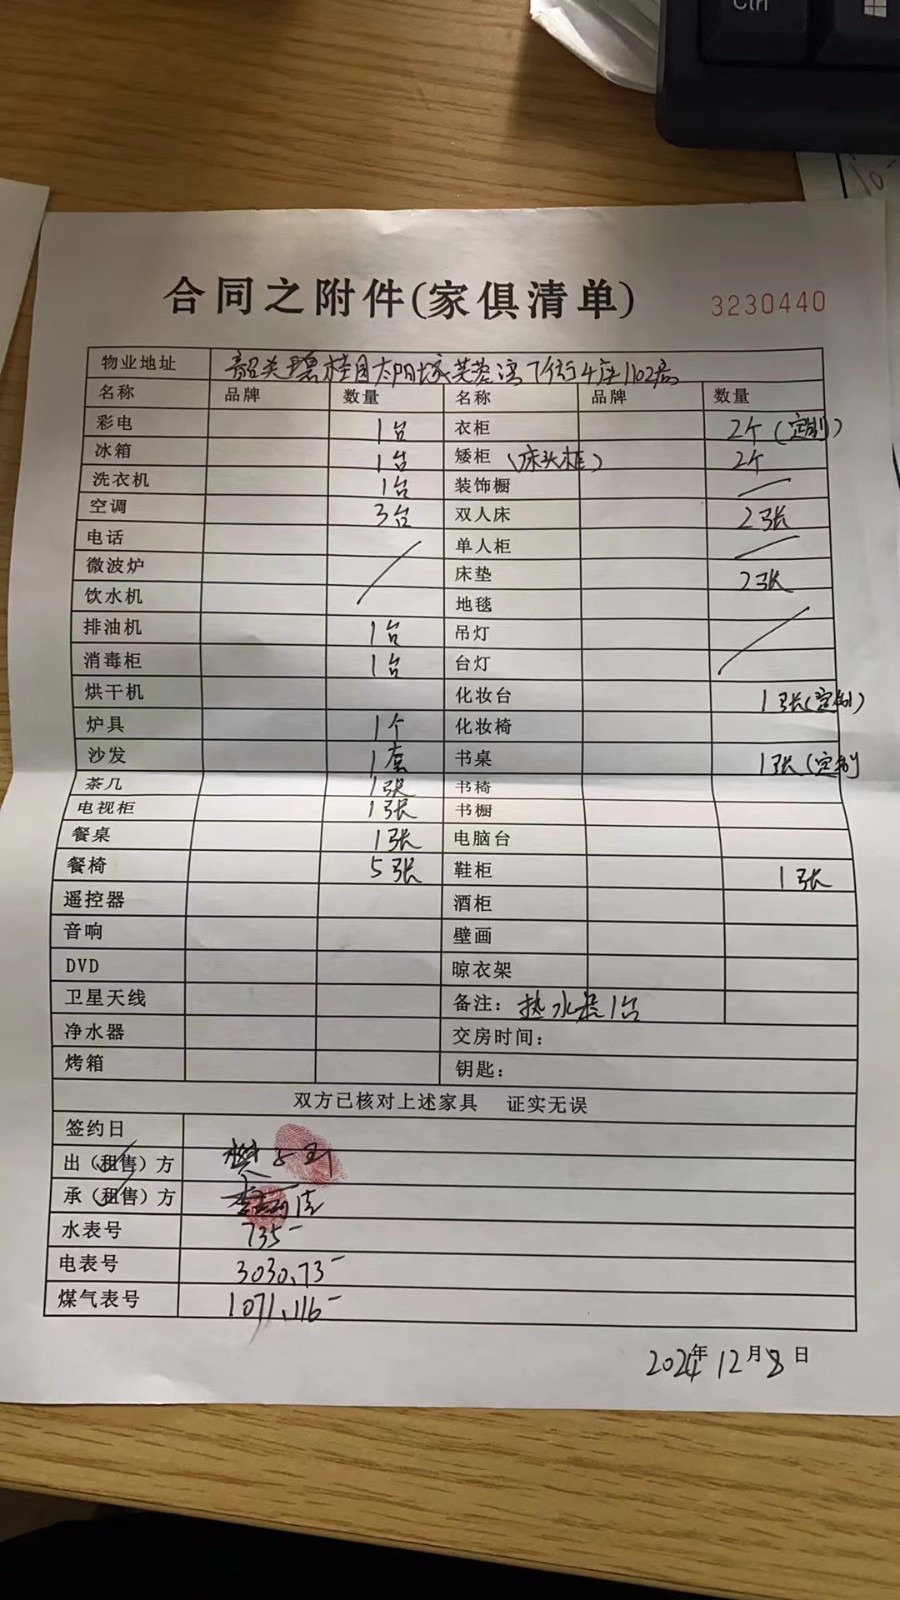 Ctrl
合同之附件(家俱清单) 3230440
物业地址 韶关碧桂园太阳城芙蓉湾7街4座1102房
名称 品牌 数量 名称 品牌 数量
彩电 1台 衣柜 2个(定制)
冰箱 1台 矮柜(床头柜) 2个
洗衣机 1台 装饰橱
空调 3台 双人床 2张
电话 单人柜
微波炉 床垫 2张
饮水机 地毯
排油机 1台 吊灯
消毒柜 1台 台灯
烘干机 化妆台 1张(定制)
炉具 1个 化妆椅
沙发 1套 书桌 1张(定制
茶几 1张 书椅
电视柜 1张 书橱
餐桌 1张 电脑台
餐椅 5张 鞋柜 1张
遥控器 酒柜
音响 壁画
DVD 晾衣架
卫星天线 备注: 热水器1台
净水器 交房时间:
烤箱 钥匙:
双方已核对上述家具 证实无误
签约日
出(租售)方
承(租售)方
水表号 735-
电表号 3030.73-
煤气表号 1071.116-
2024年12月8日